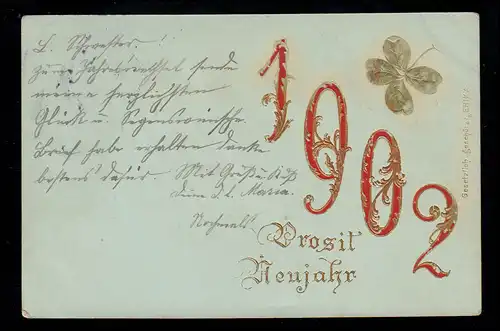 L. Schwester!
zum Jahreswechsel sende
meine herzlichsten
Glück u. Segenswünsche.
Brief habe erhalten danke
bestens dafür. Mit Gruß u. Kuß
Deine L. Maria.
Nochmals
1902
Prosit
Neujahr
Gesetzlich Geschützt